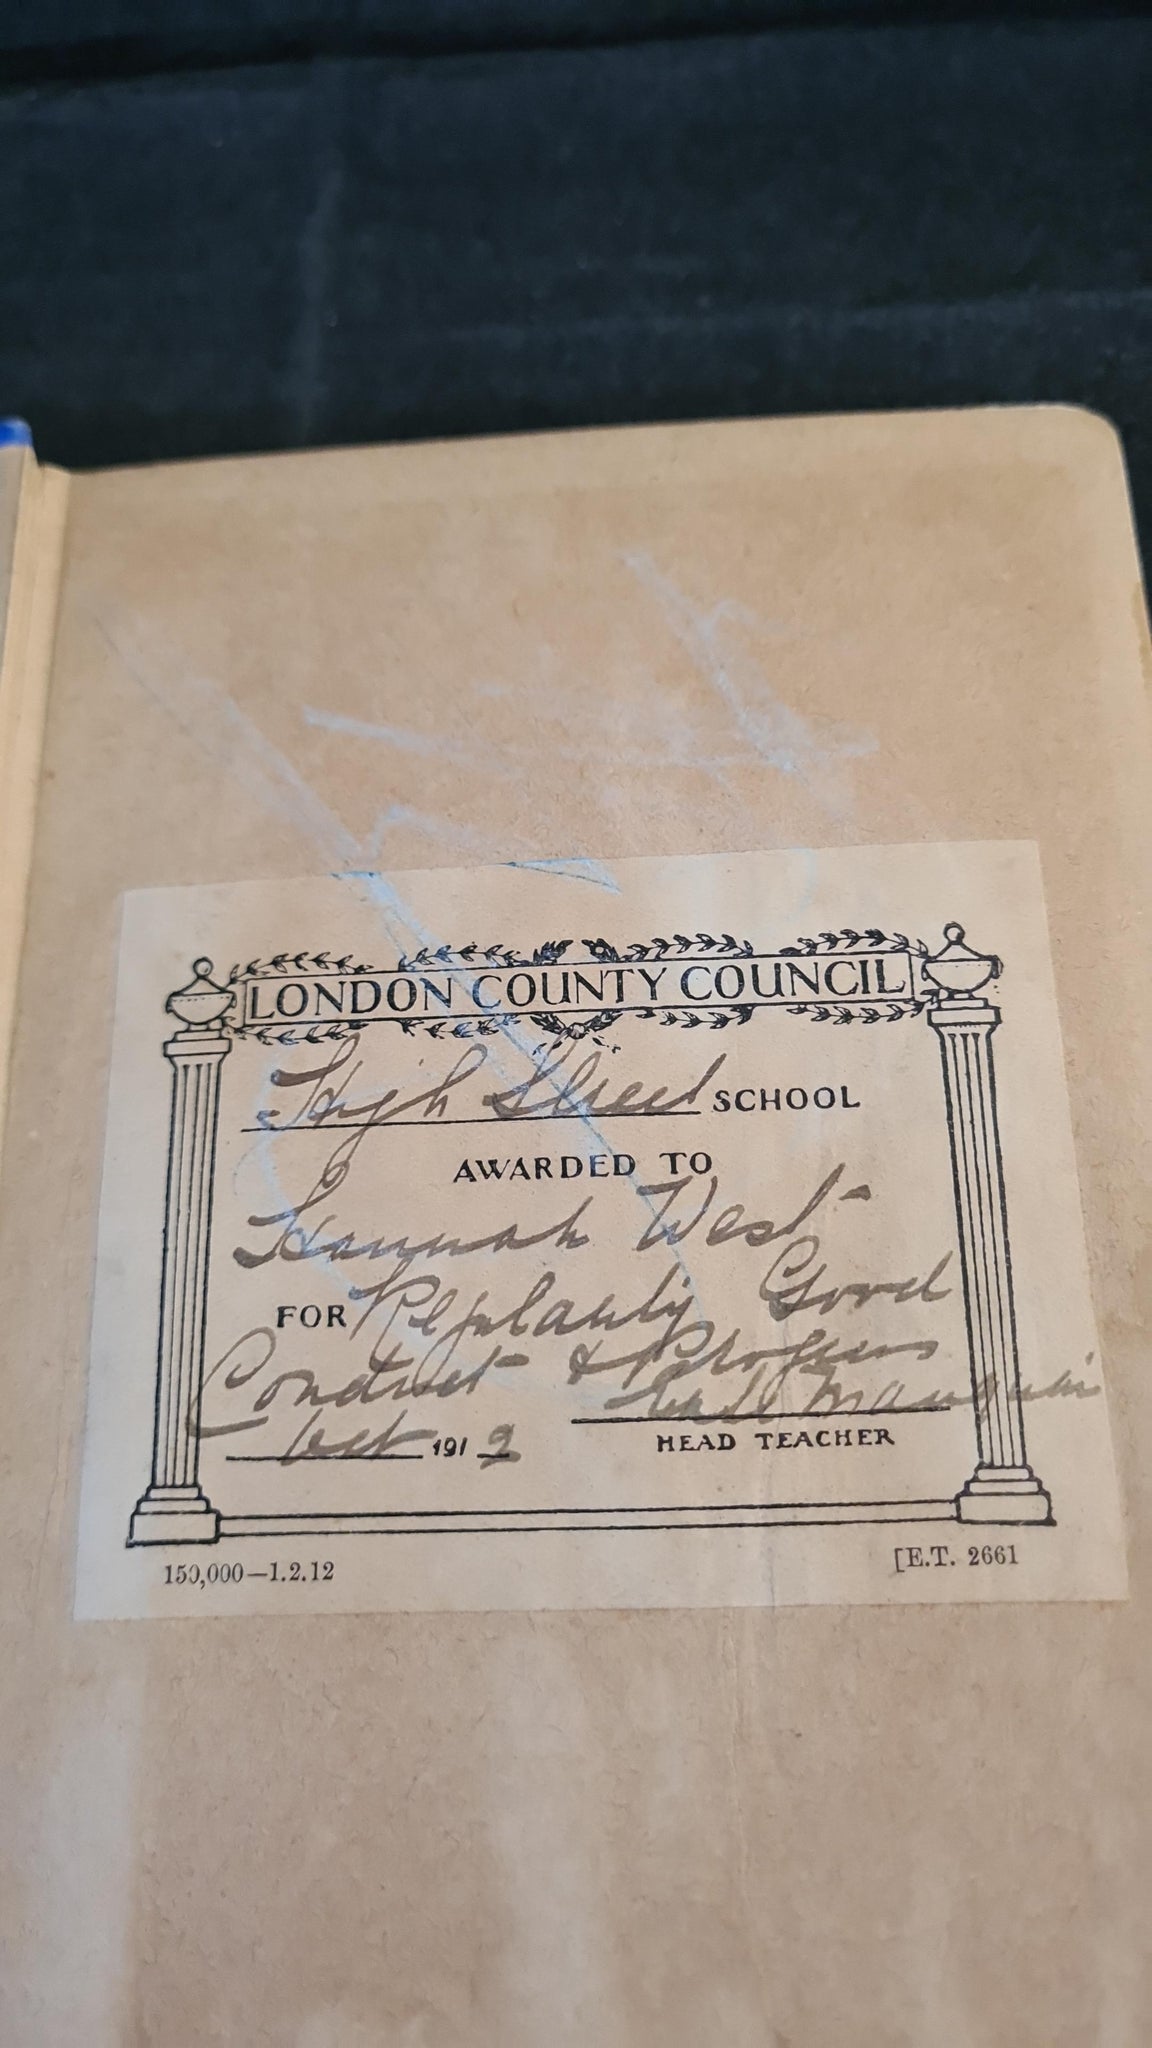 LONDON COUNTY COUNCIL
High Street SCHOOL
AWARDED TO
Hannah West
FOR Regularity Good
Conduct & Progress
Oct 1912
HEAD TEACHER
150,000—1.2.12 [E.T. 2661